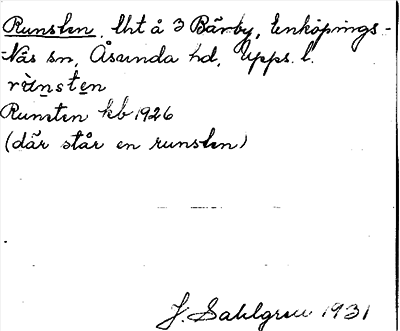 Runsten, lht å 3 Bärby, Enköpings-
Näs sn, Åsunda hd, Upps. l.
rùnsten
Runsten kb 1926
(där står en runsten)
J. Sahlgren 1931